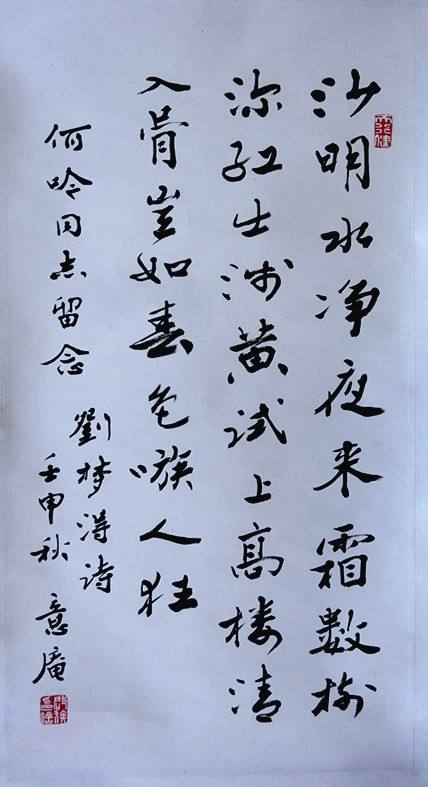 天行健
沙明水净夜来霜數樹
深红出浅黄試上高楼清
入骨豈如春色嗾人狂
劉梦得詩
何吟同志留念
壬申秋 意庵